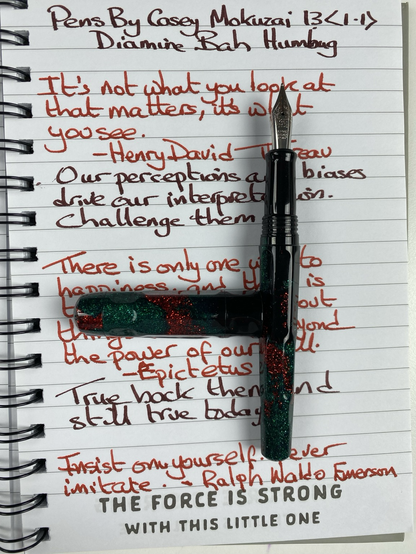 Pens By Casey Mokuzai 13<1.1>
Diamine Bah Humbug
It's not what you look at
that matters, it's what
you see.
-Henry David Thoreau
Our perceptions a biases
drive our interpretation.
Challenge them
There is only one to
happiness. and is
out
yond
the power of our
-Epictetus
True back then and
still true today
Insist on yourself. ever
imitate. - Ralph Waldo Emerson
THE FORCE IS STRONG
WITH THIS LITTLE ONE